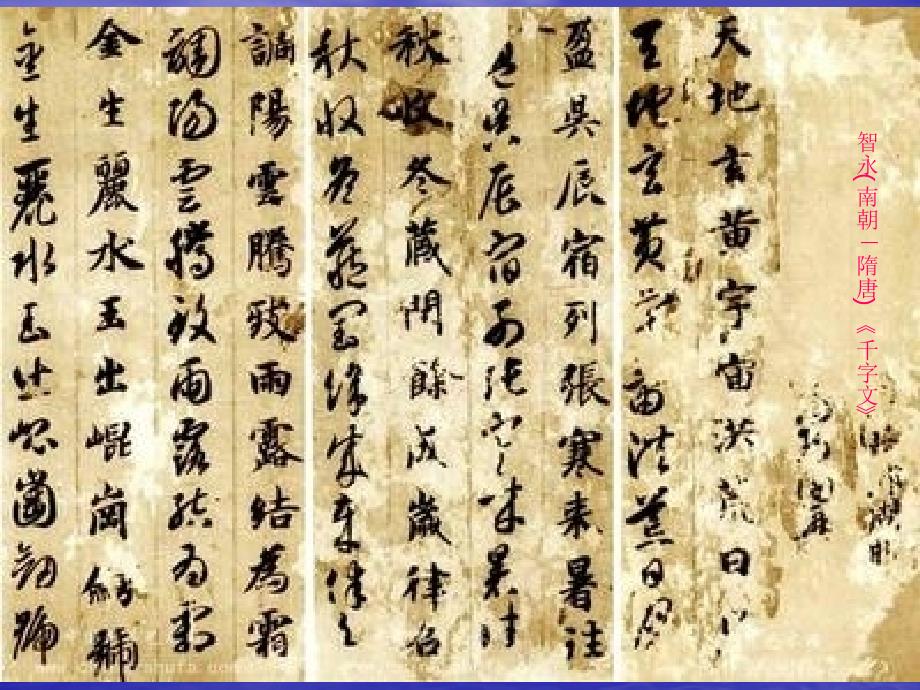 智永(南朝－隋唐)《千字文》
天地玄黄宇宙洪荒日月
天地玄黄宇宙洪荒日月
盈昃辰宿列張寒来暑往
盈昃辰宿列張寒来暑往
秋收冬蔵閏餘成歲律召
秋收冬蔵閏餘成歲律召
調陽雲騰致雨露結為霜
調陽雲騰致雨露結為霜
金生麗水玉出崐崗劒號
金生麗水玉出崐崗劒號